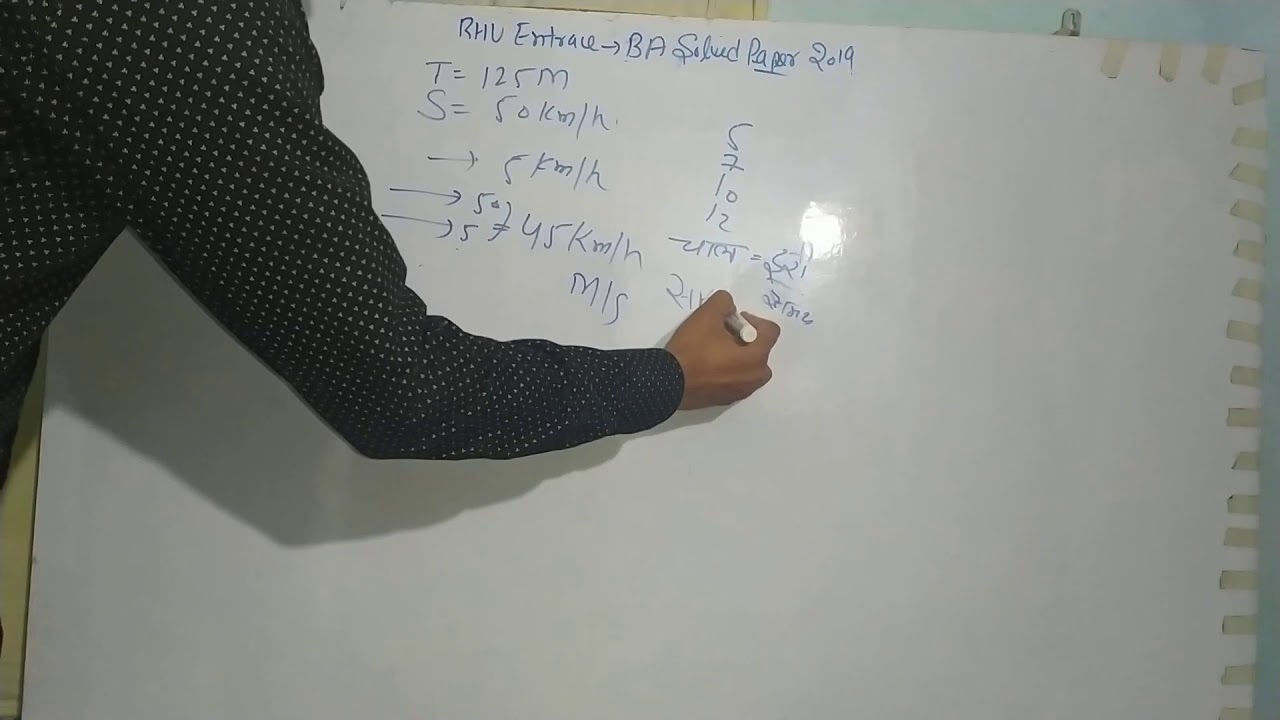 BHU Entrace → BA Solved Paper 2019
T = 125M
S = 50Km/h.
→ 5Km/h
→ 50
→ 5 = 45Km/h
M/S
5
7
10
12
चाल = दूरी
समय